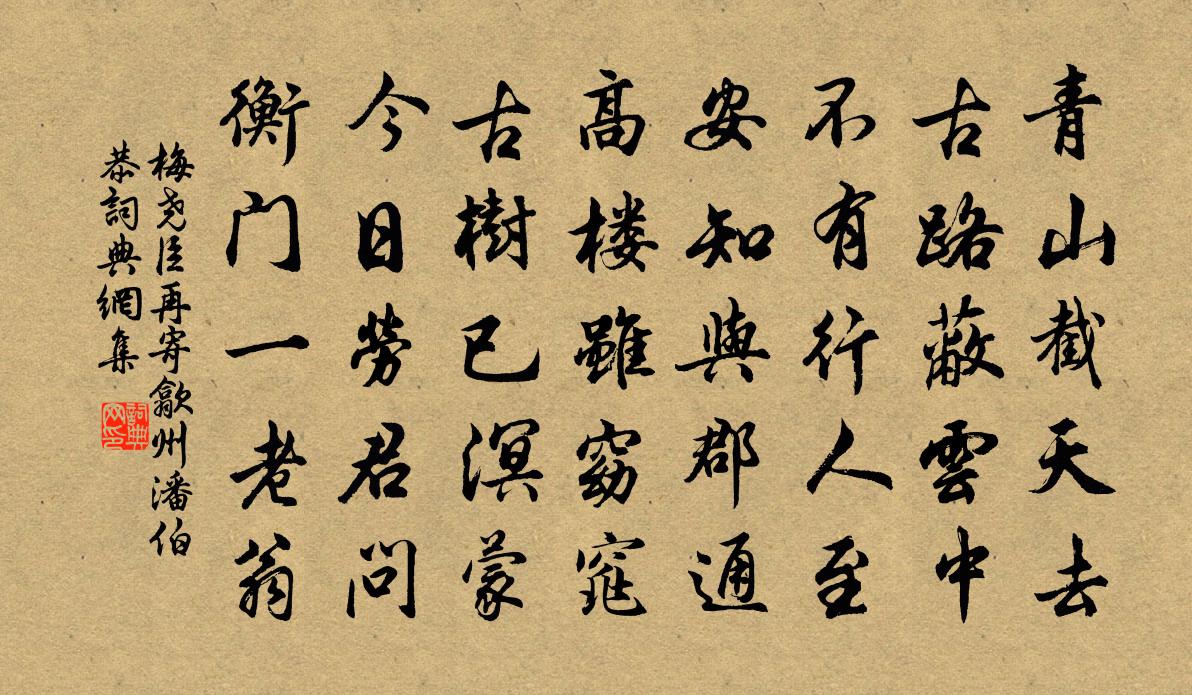 青山截天去
古路蔽雲中
不有行人至
安知與郡通
高楼雖窈窕
古樹已溟蒙
今日勞君問
衡門一老翁
梅尧臣再寄歙州潘伯
恭詞典網集
詞典网印